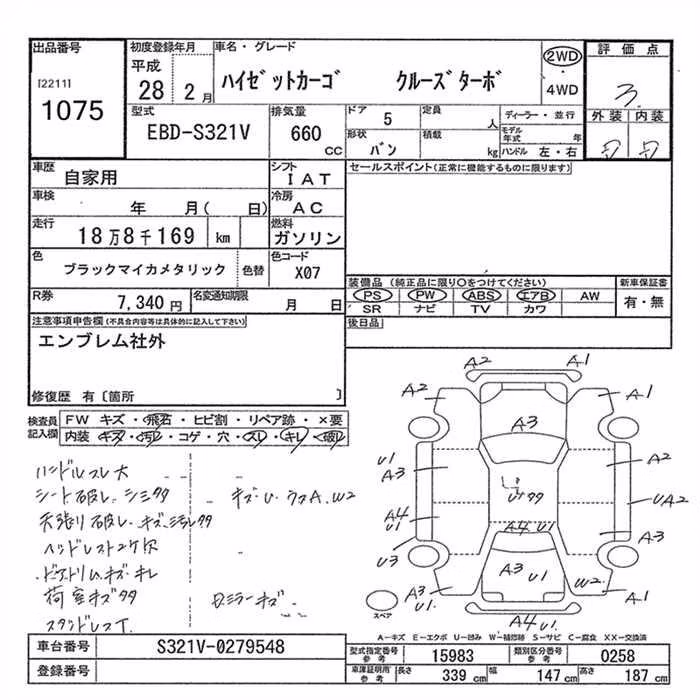 出品番号
[2211]
1075
初度登録年月
平成
28 2月
車名・グレード
ハイゼットカーゴ クルーズターボ
2WD
4WD
評価点
3
外装 内装
型式
EBD-S321V
排気量
660
CC
ドア
5
定員
人
形状
バン
積載
kg
ディーラー・並行
モデル
年式 年
ハンドル 左・右
車歴
自家用
シフト
IAT
車検
年 月( 日)
冷房
AC
走行
18万8千169 km
燃料
ガソリン
色
ブラックマイカメタリック
色替
色コード
X07
R券
7,340 円
名変通知期限
月 日
セールスポイント(正常に機能するものに限ります)
装備品 (純正品に限り○をつけてください)
PS PW ABS エアB AW
SR ナビ TV カワ
新車保証書
有・無
後日品
注意事項申告欄(不具合内容等は具体的に記入して下さい)
エンブレム社外
修復歴 有〔箇所 〕
検査員
記入欄
FW キズ・飛石・ヒビ割・リペア跡・×要
内装 キズ・汚レ・コゲ・穴・スレ・キレ・破レ
ハンドルスレ大
シート破レ シミ多々
キズ・U ウスA、W2
天張り破レ キズ・汚レ多々
ヘッドレスト2ケ欠
荷室キズ多々
Dミラーキズ
A2 A1
A2 A1
A3
U1
A3
A2
U多々
UA2
A4
U1
A4 U1
A3
U3
A3 U1
A3
U1
W2
A1
A4 U1
スペア
A—キズ E—エクボ U—凹み W—補修跡 S—サビ C—腐食 XX—交換済
車台番号
S321V-0279548
登録番号
型式指定番号
参考
15983
類別区分番号
参考
0258
車庫証明用
参考
長さ 339 cm 幅 147 cm 高さ 187 cm